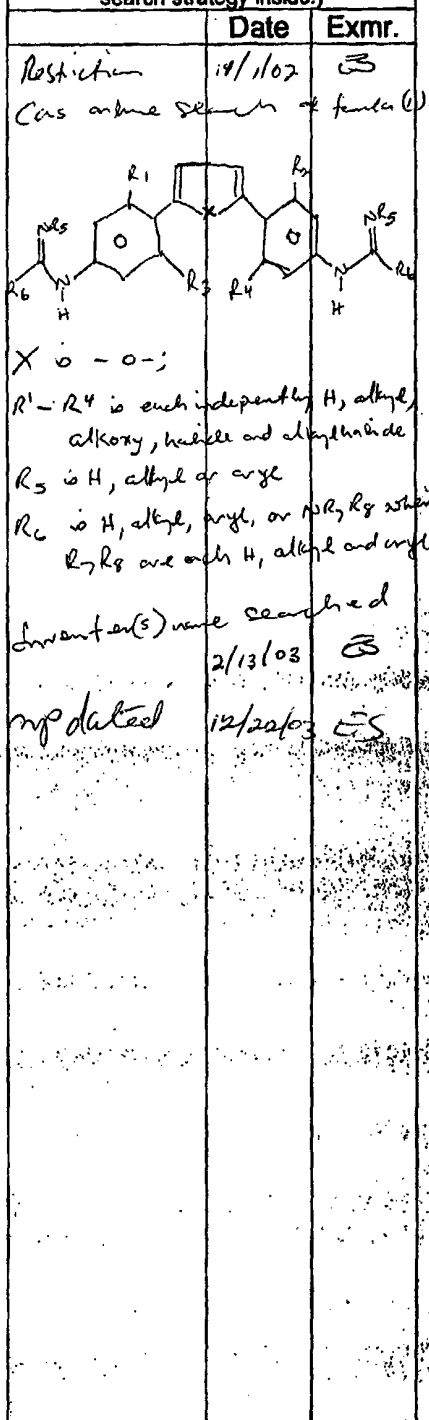 search strategy inside.)
Date Exmr.
Restriction
Cas online search of formula (1)
R1 R2
X
NR5 NR5
R6 N H R3 R4 N H R6
X is -O-;
R1-R4 is each independently H, alkyl,
alkoxy, halide and alkylhalide
R5 is H, alkyl or aryl
R6 is H, alkyl, aryl, or NR7R8 where
R7R8 are each H, alkyl and aryl
Inventor(s) name searched
2/13/03 ES
updated 12/22/03 ES